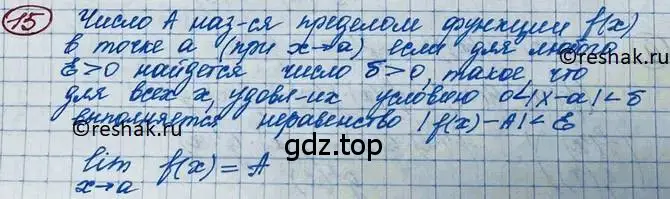 15 Число A наз-ся пределом функции f(x)
в точке a (при x→a) если для любого
ε>0 найдется число δ>0, такое, что
для всех x, удовл-их условию 0<|x-a|<δ
выполняется неравенство |f(x)-A|<ε
lim f(x) = A
x→a
©reshak.ru
©reshak.ru
©reshak.ru
gdz.top